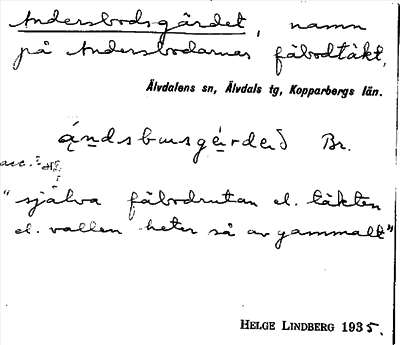 Andersbodsgärdet, namn
på Andersbodarnas fäbodtäkt,
Älvdalens sn, Älvdals tg, Kopparbergs län.
ándsbusgérdeð Br.
acc.
"själva fäbodrutan el. täkten
el. vallen heter så av gammalt"
HELGE LINDBERG 1935.